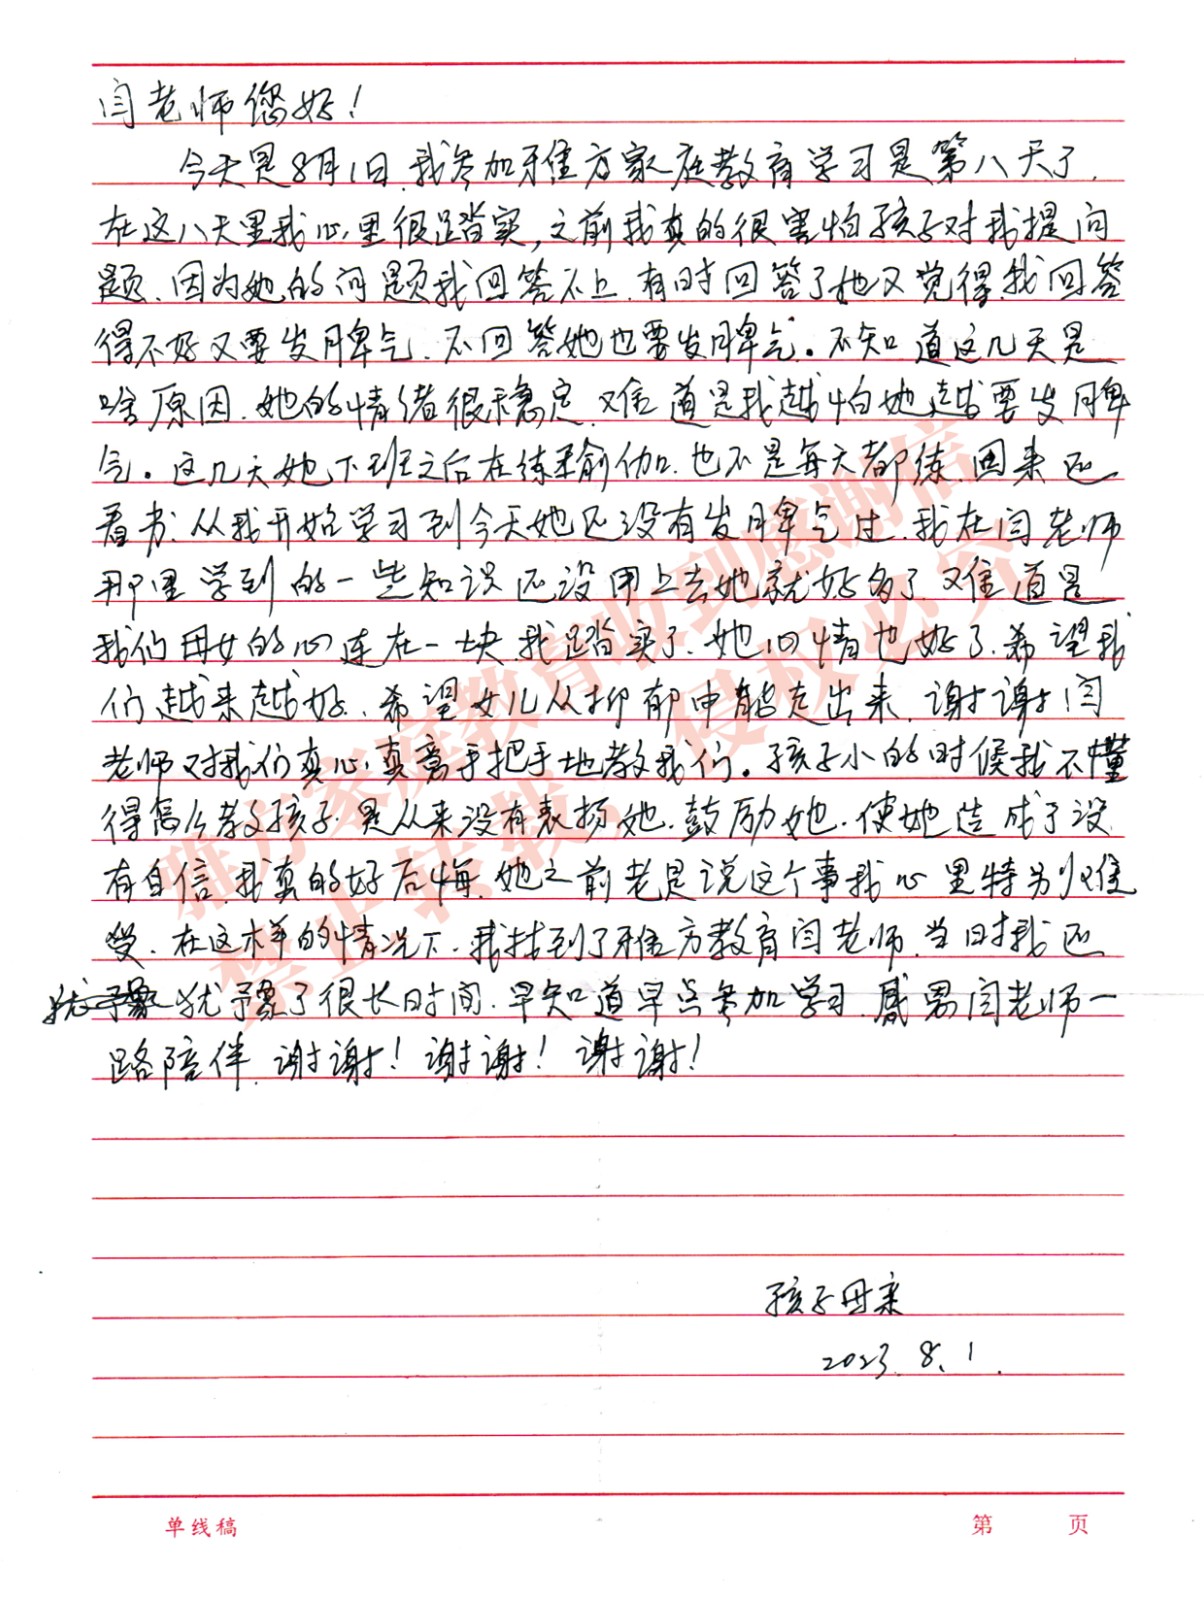 闫老师您好！
今天是8月1日.我参加雅方家庭教育学习是第八天了.
在这八天里我心里很踏实,之前我真的很害怕孩子对我提问
题.因为她的问题我回答不上.有时回答了她又觉得我回答
得不好又要发脾气.不回答她也要发脾气。不知道这几天是
啥原因.她的情绪很稳定.难道是我越怕她越要发脾
气。这几天她下班之后在练柔瑜伽.也不是每天都练.回来还
看书.从我开始学习到今天她还没有发脾气过.我在闫老师
那里学到的一些知识还没用上去她就好多了.难道是
我们母女的心连在一块.我踏实了.她心情也好了.希望我
们越来越好.希望女儿从抑郁中能走出来.谢谢闫
老师对我们真心真意手把手地教我们。孩子小的时候我不懂
得怎么教孩子.是从来没有表扬她.鼓励她.使她造成了没
有自信.我真的好后悔.她之前老是说这个事我心里特别难
受.在这样的情况下.我找到了雅方教育闫老师.当时我还
犹豫 犹豫了很长时间.早知道早点参加学习.感恩闫老师一
路陪伴.谢谢！谢谢！谢谢！
孩子母亲
2023.8.1.
单线稿 第 页
雅方家庭教育收到感谢信
禁止转载，侵权必究